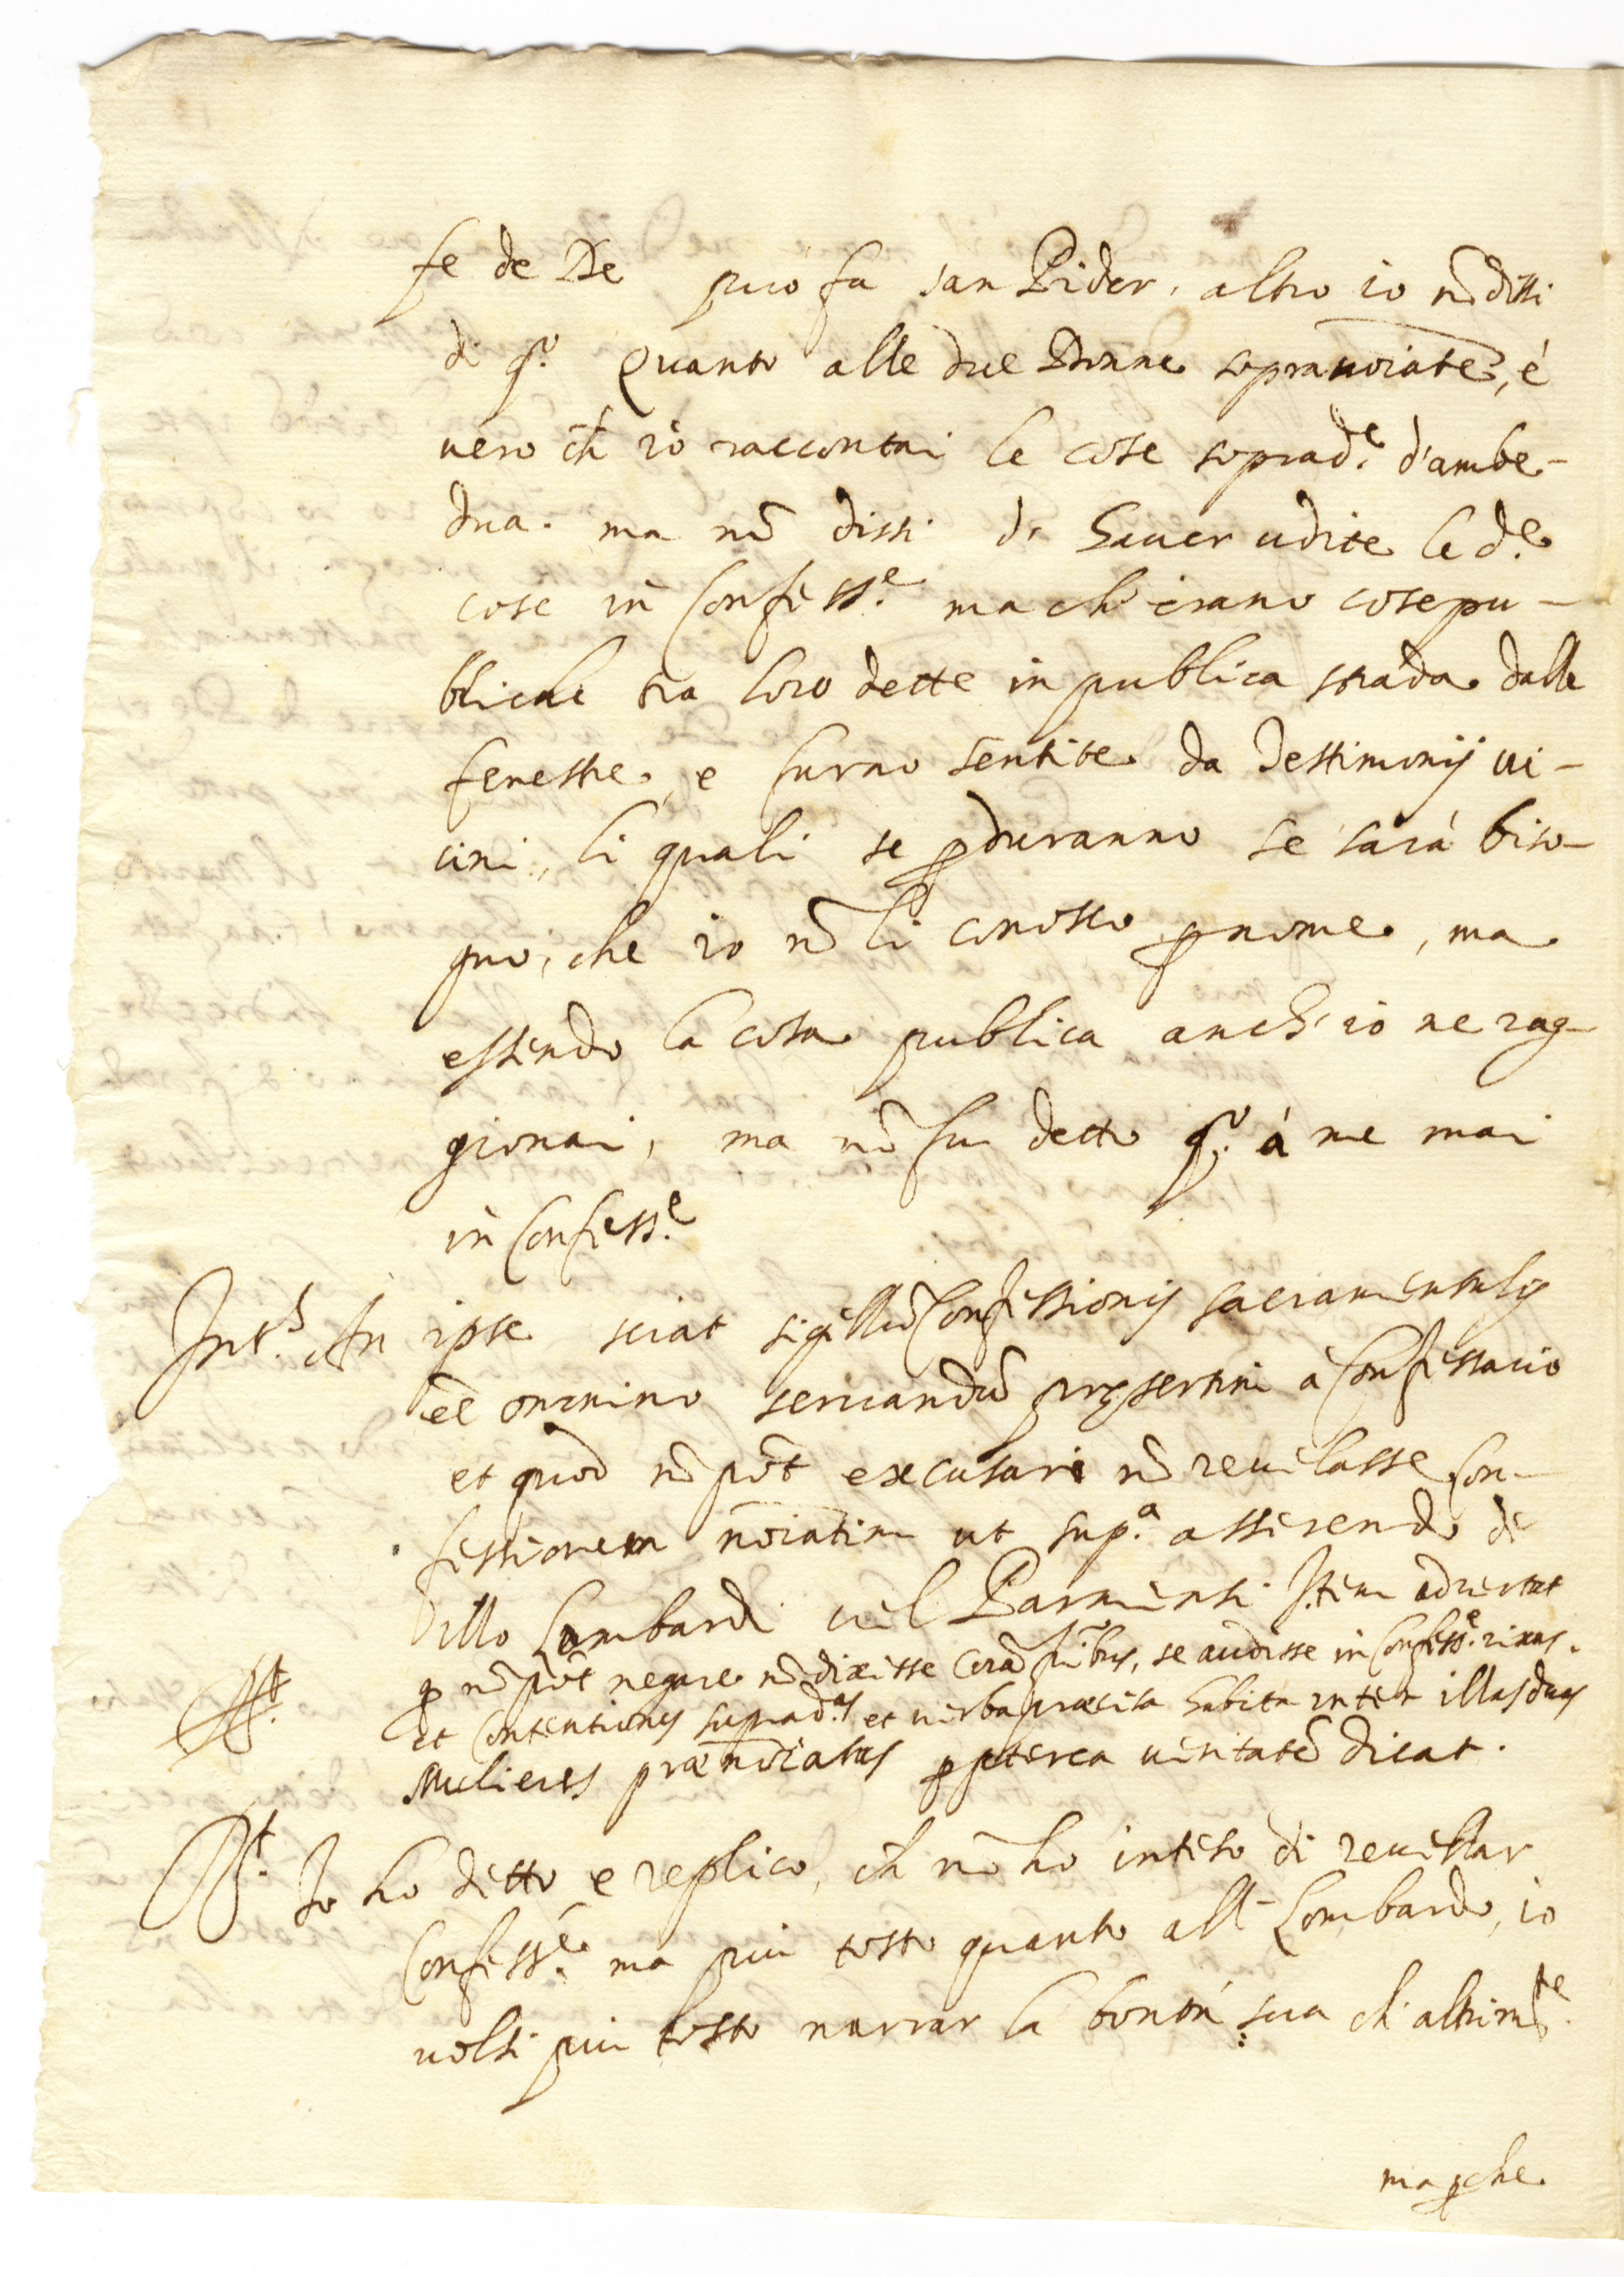 fe de De può fa san Pider, altro io nõ dissi
di q.º Quanto alle due Donne sopranoĩate, è
uero ch̃ io raccontai le cose soprad.e d'ambe-
dua. ma nõ dissi di hauer udite le d.e
cose in Confess.e ma ch' erano cose pu-
bliche tra loro dette in publica strada dalle
fenestre, e furno sentite da Testimonij ui-
cini, li quali se ꝓduranno se sarà biso-
gno, che io nõ li conosco ꝑ nome, ma
essendo la cosa publica anch' io ne rag-
gionai, ma nõ fu detto q.º à me mai
in Confess.e
Int.s An ipse sciat sigillũ Confessionis sacramentalis
eẽ omnino seruandũ presertim à Confessario
et quod nõ põt excusari nõ reuelasse Con-
fessionem noĩatim ut sup.a asserendo de
illo Lombardi uel Parmensi. Item aduertat
q nõ põt negare nõ dixisse Corã fr̃ibus, se audisse in Confess.e rixas,
et Contentiones suprad.as et uerba præcisa habita inter illas duas
Mulieres prænoĩatas ꝓpterea ueritatẽ dicat.
R.t Io ho detto e replico, ch̃ nõ ho inteso di reuellar
Confess.e ma più tosto quanto all Lombardo, io
uolsi più tosto narrar la bontà sua ch' altrim.te
ma ꝑche